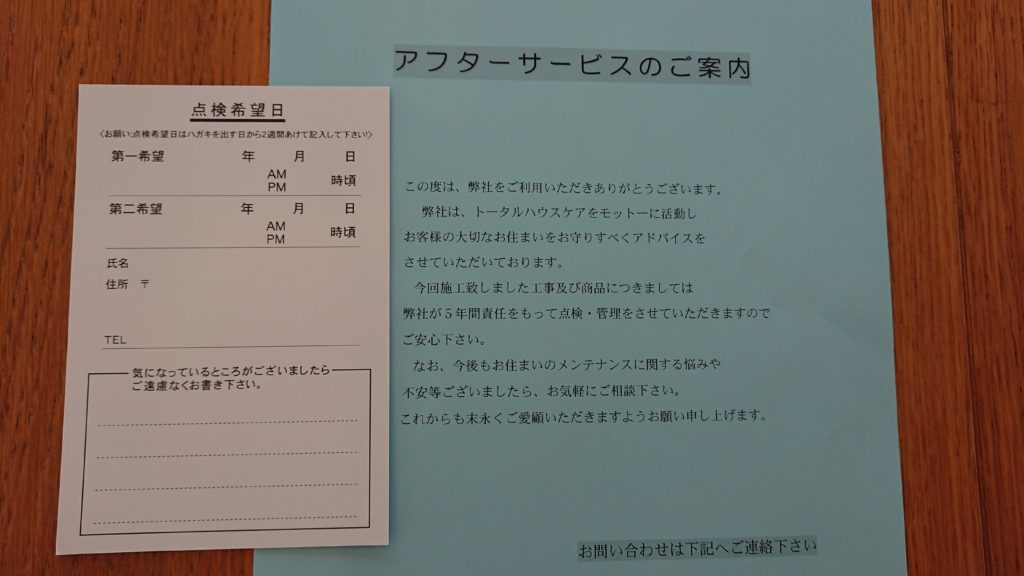 点検希望日
〈お願い:点検希望日はハガキを出す日から2週間あけて記入して下さい!〉
第一希望 年 月 日
AM
PM 時頃
第二希望 年 月 日
AM
PM 時頃
氏名
住所 〒
TEL
気になっているところがございましたら
ご遠慮なくお書き下さい。
アフターサービスのご案内
この度は、弊社をご利用いただきありがとうございます。
弊社は、トータルハウスケアをモットーに活動し
お客様の大切なお住まいをお守りすべくアドバイスを
させていただいております。
今回施工致しました工事及び商品につきましては
弊社が5年間責任をもって点検・管理をさせていただきますので
ご安心下さい。
なお、今後もお住まいのメンテナンスに関する悩みや
不安等ございましたら、お気軽にご相談下さい。
これからも末永くご愛顧いただきますようお願い申し上げます。
お問い合わせは下記へご連絡下さい